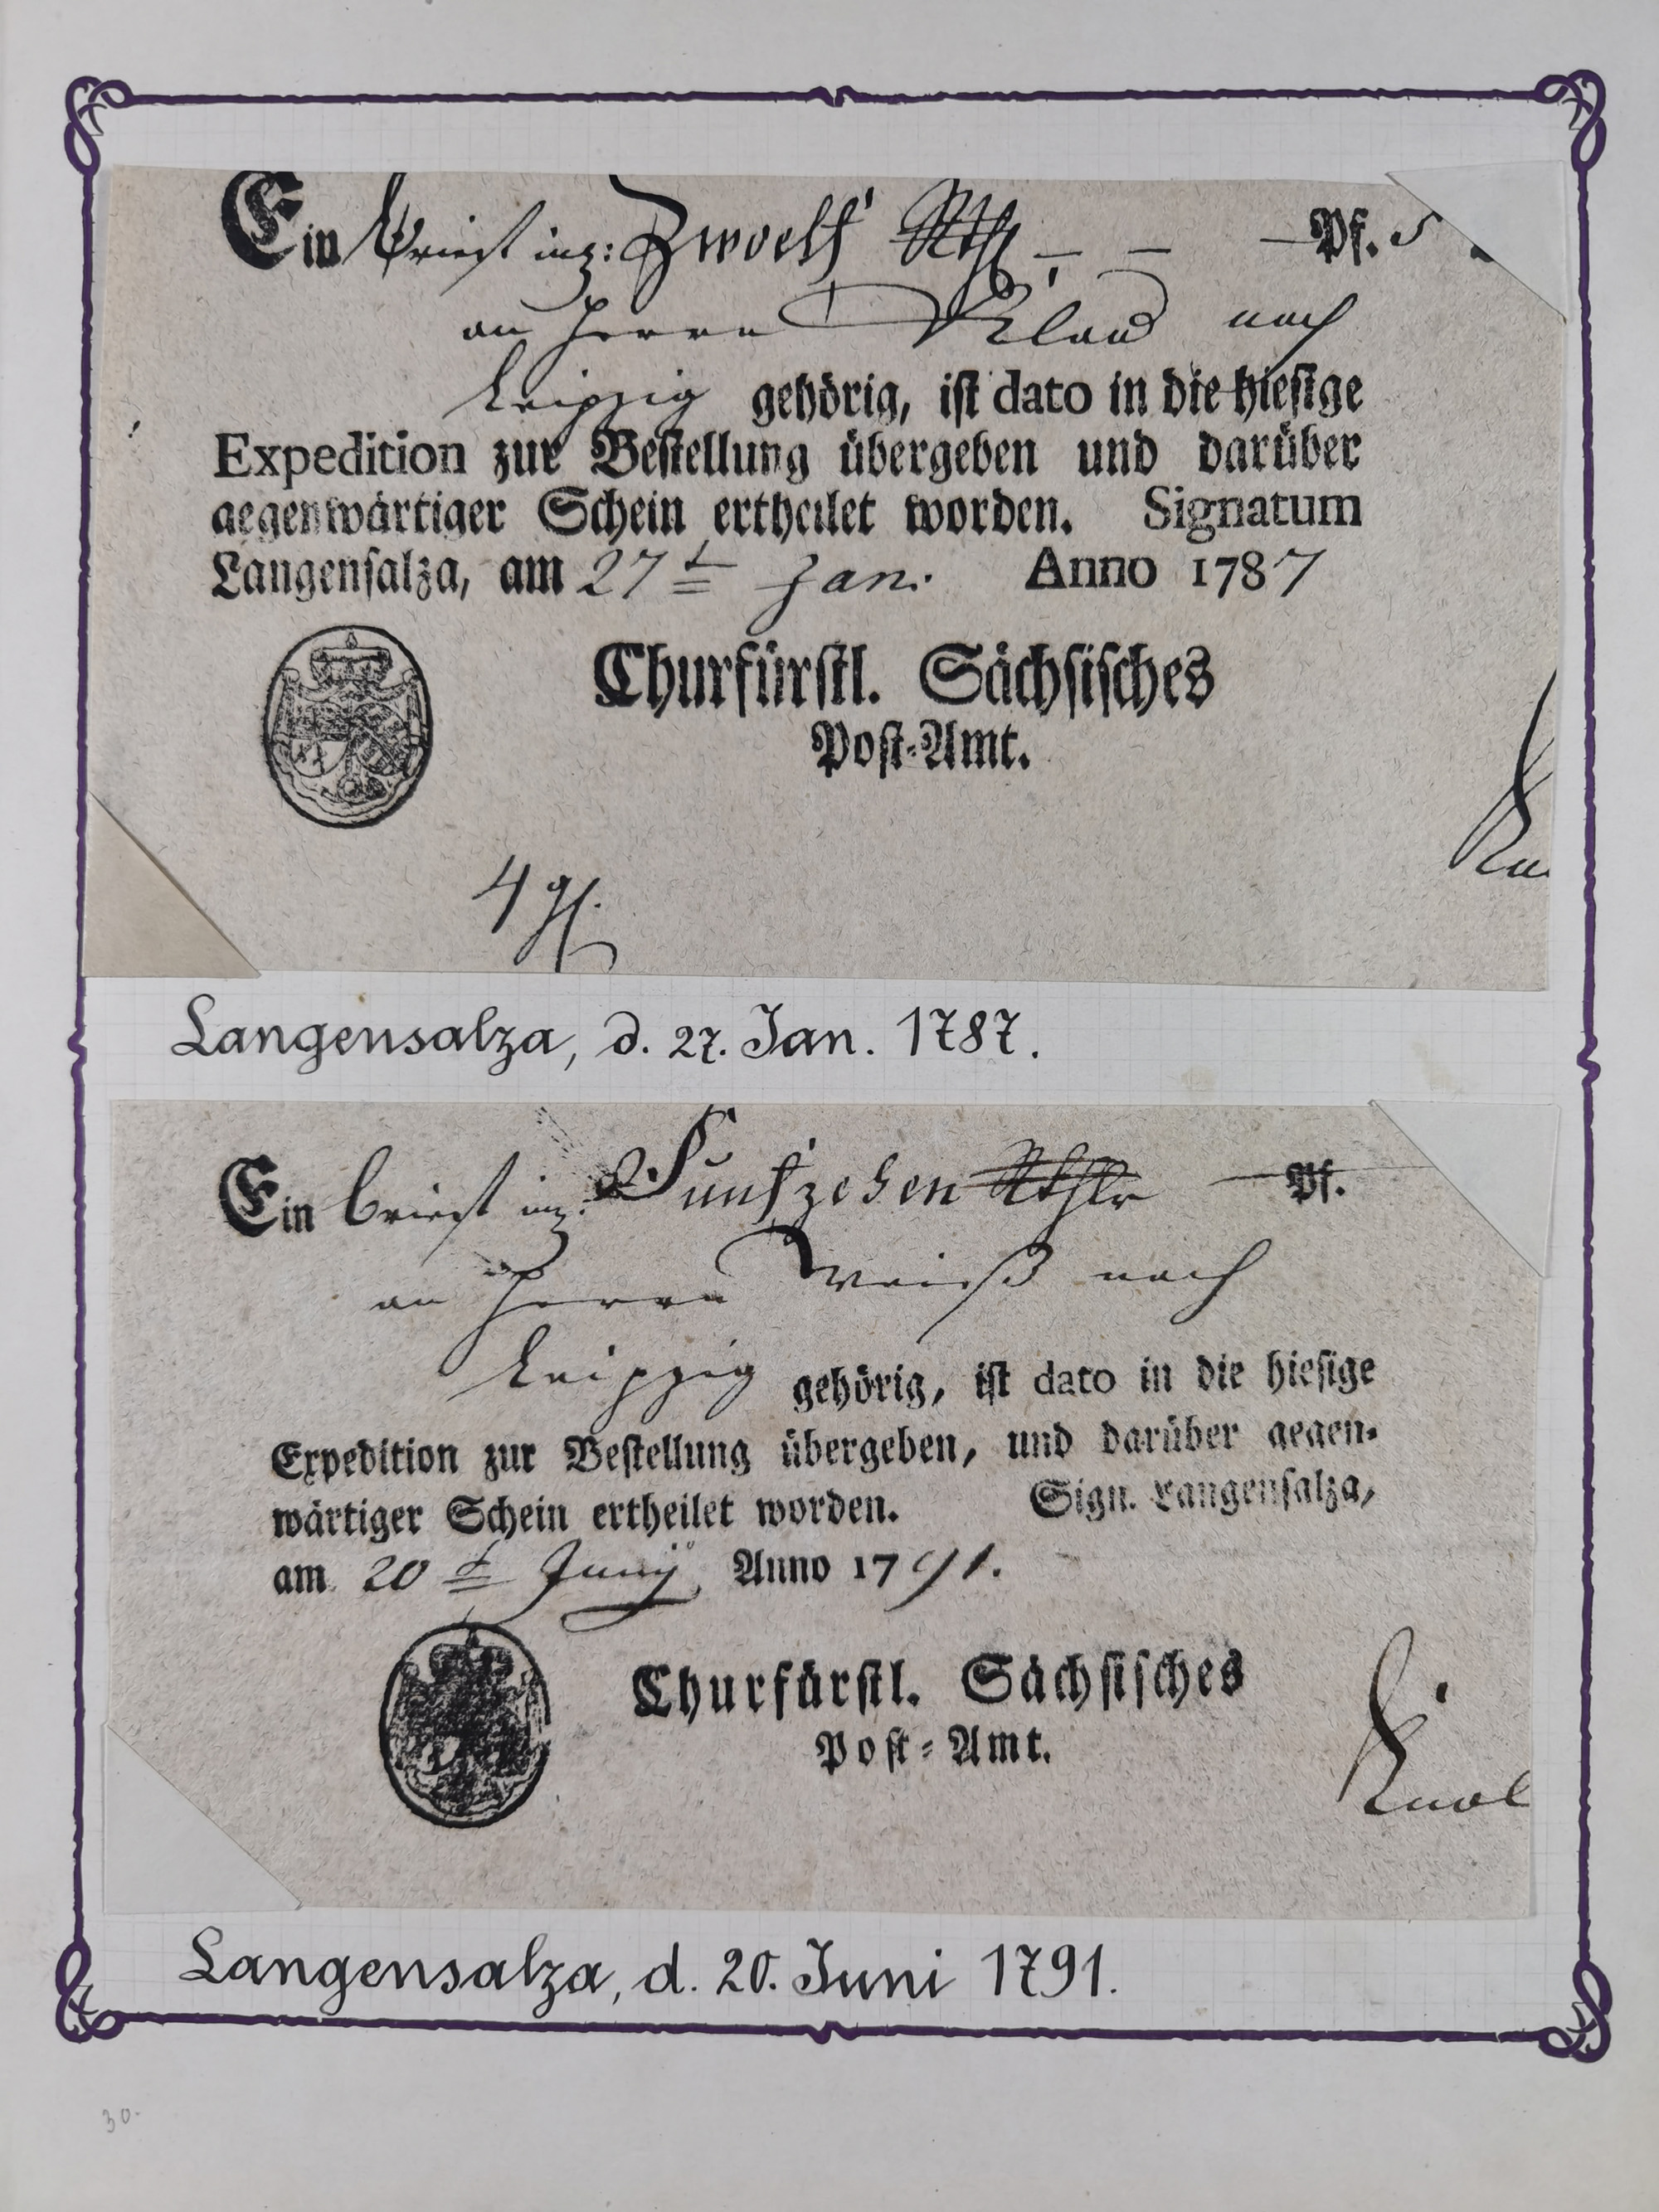 Ein Brief inz: Zwoelf Rthl — — — Pf. 5
an Herrn nach
Leipzig gehörig, ist dato in die hiesige
Expedition zur Bestellung übergeben und darüber
gegenwärtiger Schein ertheilet worden. Signatum
Langensalza, am 27t Jan. Anno 1787
Churfürstl. Sächsisches
Post-Amt.
4 gl.
Langensalza, d. 27. Jan. 1787.
Ein brief inz: Funfzehen Rthlr — Pf.
an Herrn Weiß nach
Leipzig gehörig, ist dato in die hiesige
Expedition zur Bestellung übergeben, und darüber gegen-
wärtiger Schein ertheilet worden. Sign. Langensalza,
am 20t Junij Anno 1791.
Churfürstl. Sächsisches
Post-Amt.
Langensalza, d. 20. Juni 1791.
30.